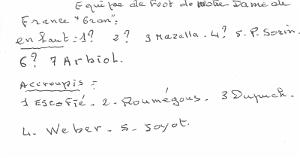 Equipe de Foot de Notre Dame de
France "Oran":
en haut: 1? 2? 3 Mazella. 4? 5. P. Sorin.
6? 7 Arbiol.
Accroupis:
1 Escofié. 2. Roumégous. 3 Dupuch.
4. Weber. 5. Joyot.